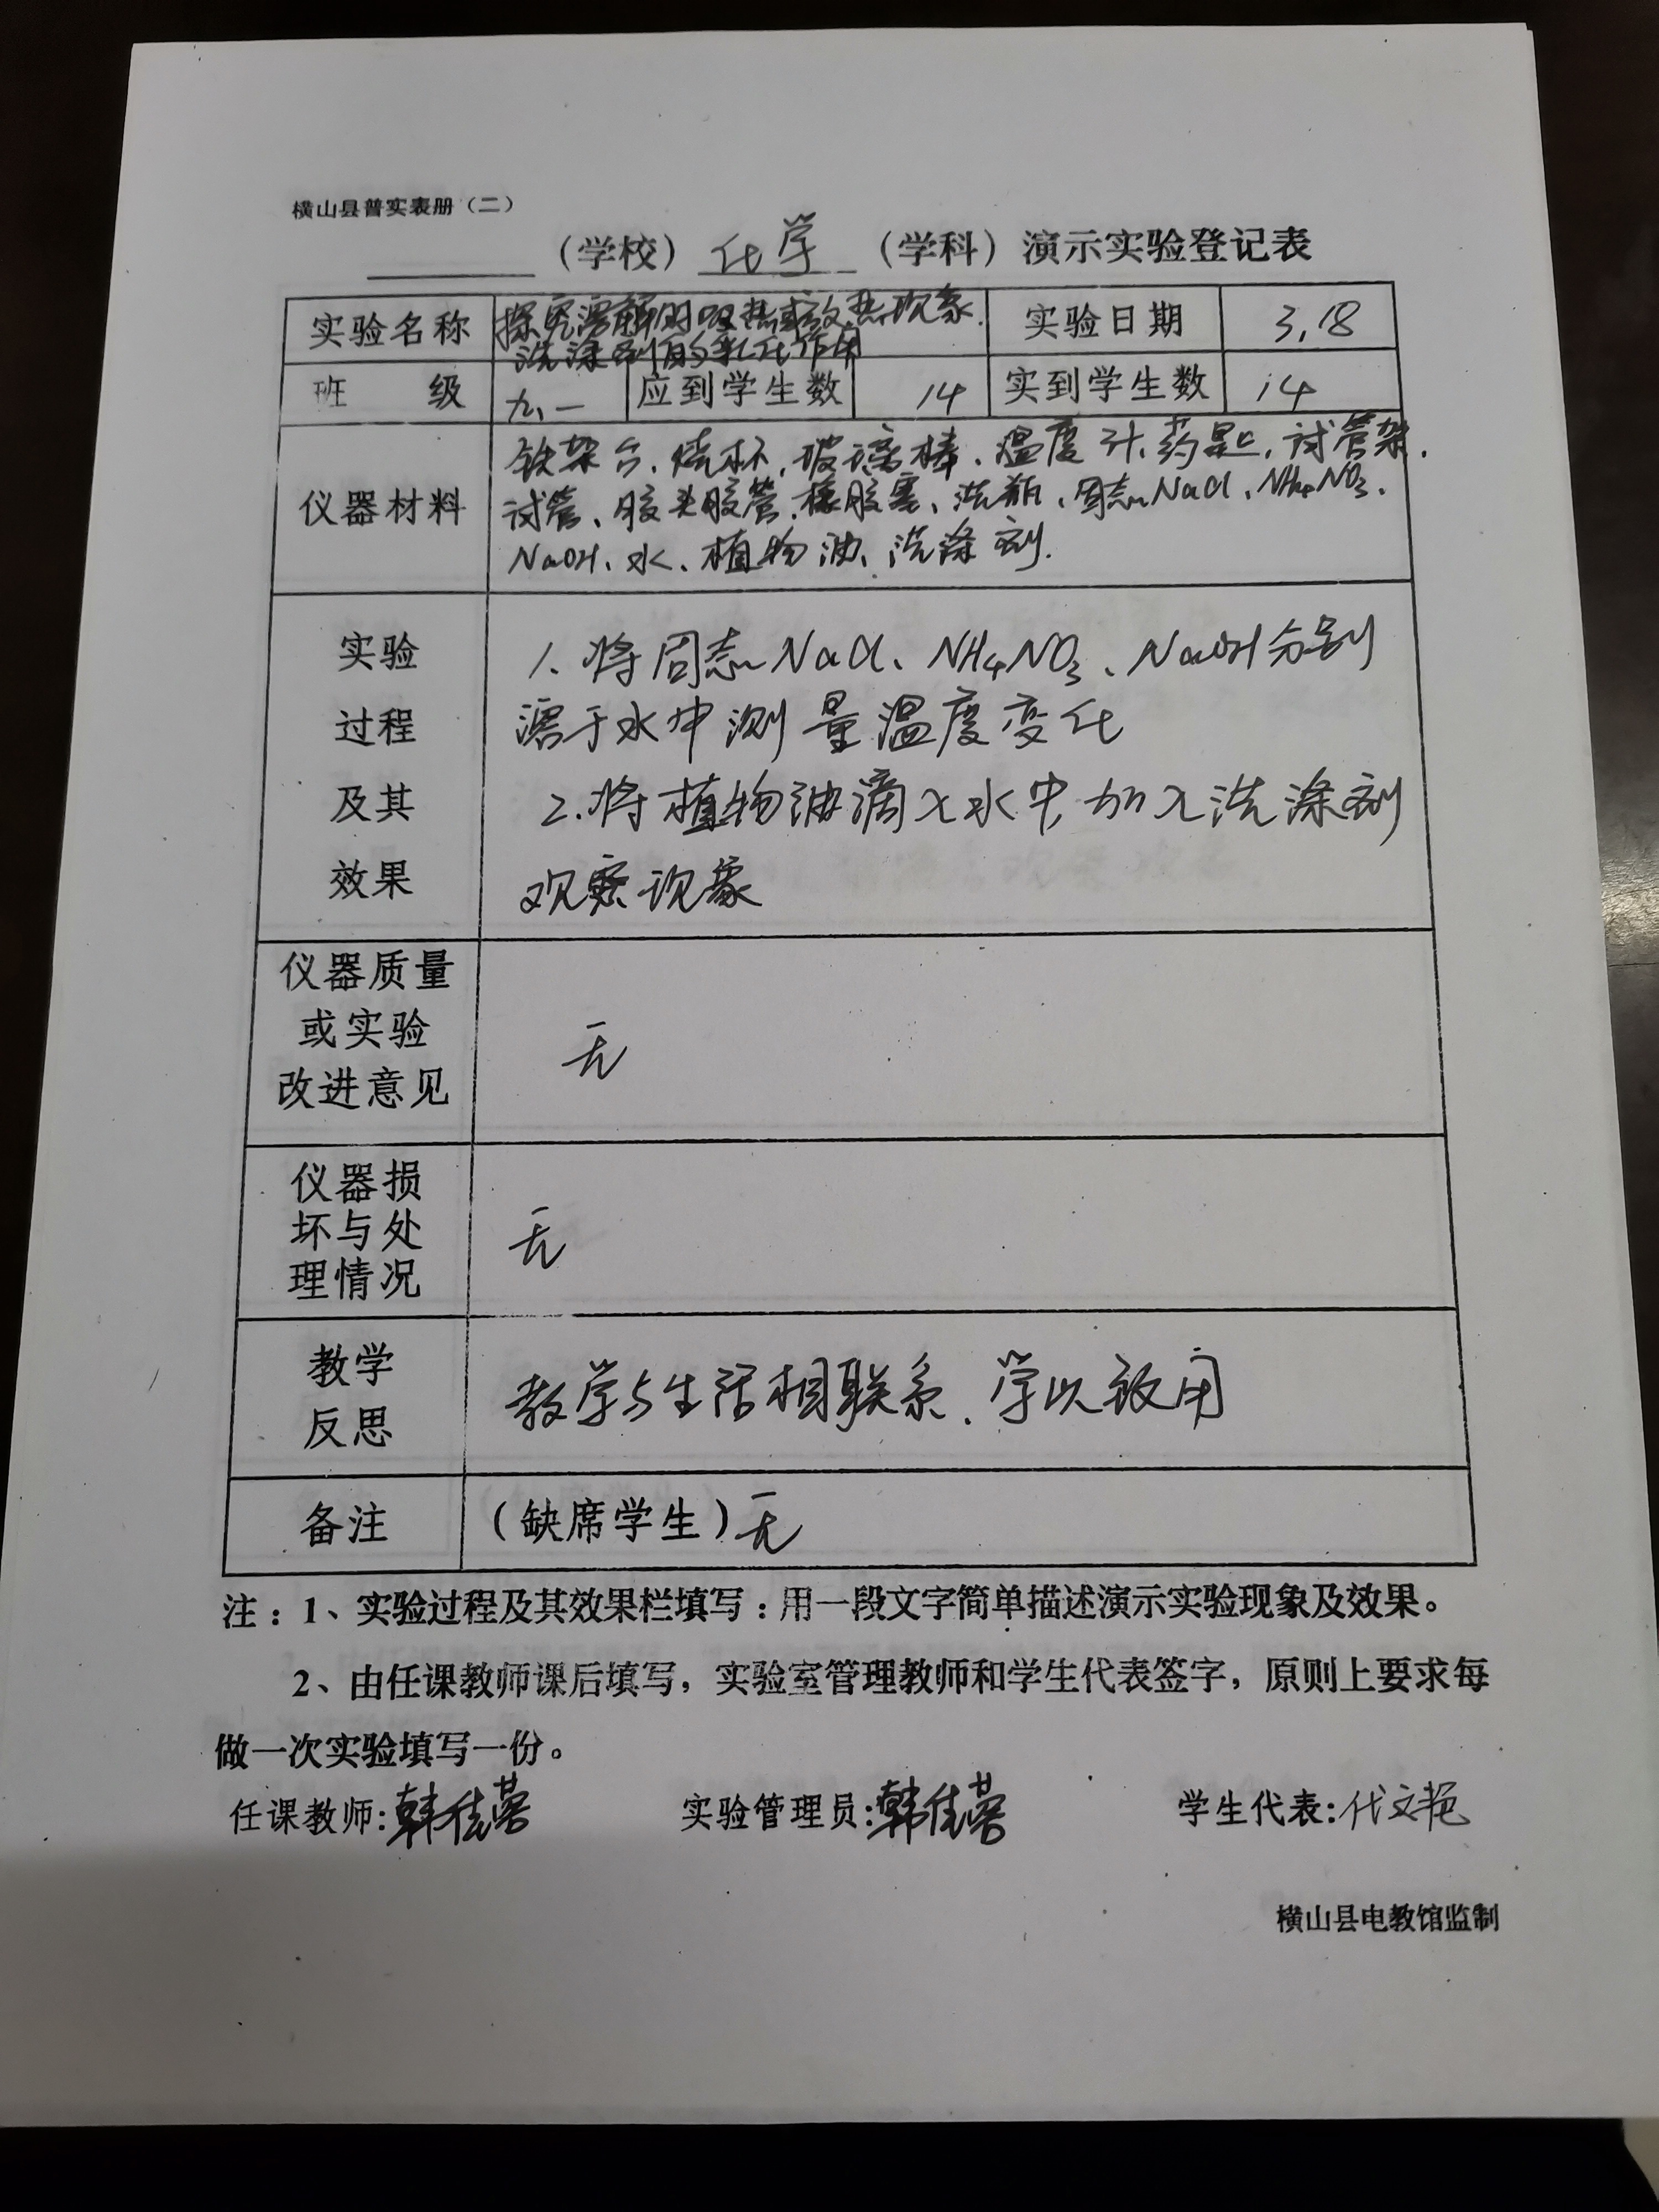 横山县普实表册（二）
（学校）化学（学科）演示实验登记表
实验名称 探究溶解时吸热或放热现象. 实验日期 3,18
洗涤剂的乳化作用
班 级 九、一 应到学生数 14 实到学生数 14
铁架台、烧杯、玻璃棒、温度计、药匙、试管架、
仪器材料 试管、胶头胶管、橡胶塞、洗瓶、固态NaCl、NH4NO3、
NaOH、水、植物油、洗涤剂.
实验 1. 将固态NaCl、NH4NO3、NaOH分别
过程 溶于水中测量温度变化
及其 2. 将植物油滴入水中,加入洗涤剂
效果 观察现象
仪器质量
或实验 无
改进意见
仪器损
坏与处 无
理情况
教学 教学与生活相联系、学以致用
反思
备注 (缺席学生)无
注：1、实验过程及其效果栏填写：用一段文字简单描述演示实验现象及效果。
2、由任课教师课后填写，实验室管理教师和学生代表签字，原则上要求每
做一次实验填写一份。
任课教师:韩佳蓉 实验管理员:韩佳蓉 学生代表:代文艳
横山县电教馆监制